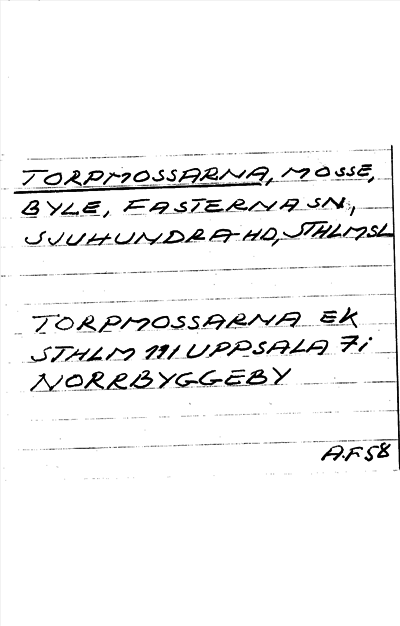 TORPMOSSARNA, MOSSE,
BYLE, FASTERNA SN,
SJUHUNDRA HD, STHLMSL
TORPMOSSARNA EK
STHLM 111 UPPSALA 7i
NORRBYGGEBY
A.F. 58